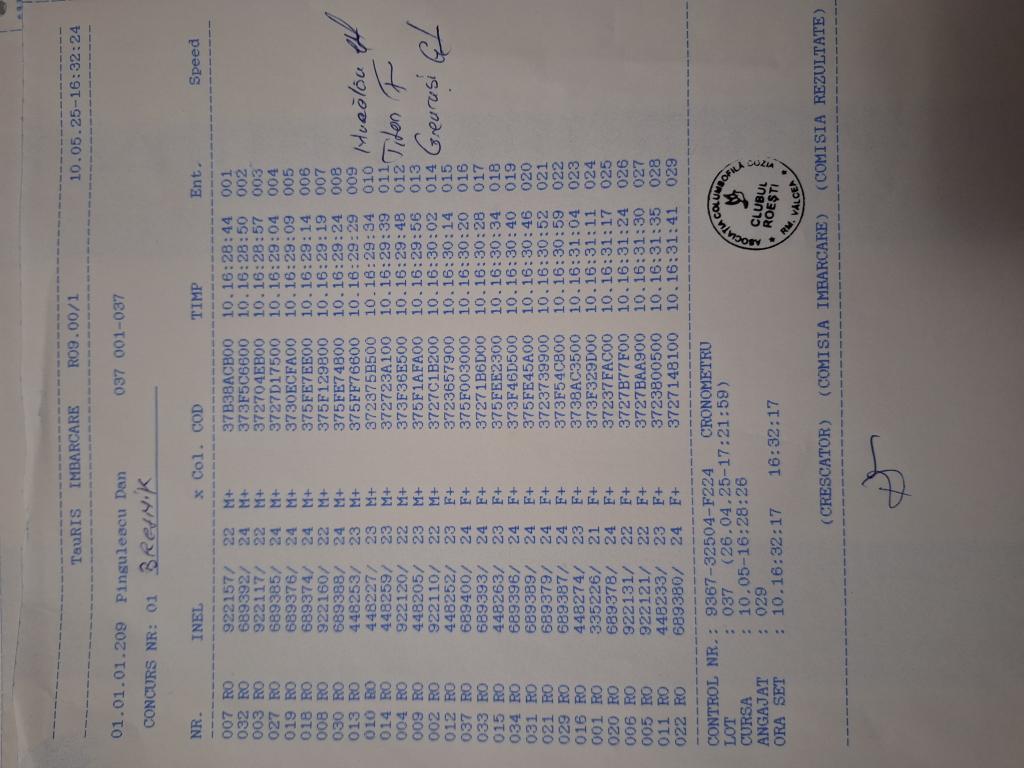 TauRIS IMBARCARE R09.00/1 10.05.25-16:32:24
01.01.01.209 Pingulescu Dan 037 001-037
CONCURS NR: 01 BREZNIK
NR. INEL x Col. COD TIMP Ent. Speed
007 RO 922157/ 22 M+ 37B38ACB00 10.16:28:44 001
032 RO 689392/ 24 M+ 373F5C6600 10.16:28:50 002
003 RO 922117/ 22 M+ 372704EB00 10.16:28:57 003
027 RO 689385/ 24 M+ 3727D17500 10.16:29:04 004
019 RO 689376/ 24 M+ 3730ECFA00 10.16:29:09 005
018 RO 689374/ 24 M+ 375FF7EE00 10.16:29:14 006
008 RO 922160/ 22 M+ 375F129B00 10.16:29:19 007
030 RO 689388/ 24 M+ 375FE74B00 10.16:29:24 008
013 RO 448253/ 23 M+ 375FF76600 10.16:29:29 009
010 RO 448227/ 23 M+ 372375B500 10.16:29:34 010
014 RO 448259/ 23 M+ 372723A100 10.16:29:39 011
004 RO 922120/ 22 M+ 373F36E500 10.16:29:48 012
009 RO 448205/ 23 M+ 375F1AFA00 10.16:29:56 013
002 RO 922110/ 22 M+ 3727C1B200 10.16:30:02 014
012 RO 448252/ 23 F+ 3723657900 10.16:30:14 015
037 RO 689400/ 24 F+ 375F003000 10.16:30:20 016
033 RO 689393/ 24 F+ 37271B6D00 10.16:30:28 017
015 RO 448263/ 23 F+ 375FEE2300 10.16:30:34 018
034 RO 689396/ 24 F+ 373F46D500 10.16:30:40 019
031 RO 689389/ 24 F+ 375FE45A00 10.16:30:46 020
021 RO 689379/ 24 F+ 3723739900 10.16:30:52 021
029 RO 689387/ 24 F+ 373F54C800 10.16:30:59 022
016 RO 448274/ 23 F+ 3738AC3500 10.16:31:04 023
001 RO 335226/ 21 F+ 373F329D00 10.16:31:11 024
020 RO 689378/ 24 F+ 37237FAC00 10.16:31:17 025
006 RO 922131/ 22 F+ 3727B77F00 10.16:31:24 026
005 RO 922121/ 22 F+ 3727BAA900 10.16:31:30 027
011 RO 448233/ 23 F+ 3723800500 10.16:31:35 028
022 RO 689380/ 24 F+ 3727148100 10.16:31:41 029
Titan F
CONTROL NR.: 9367-32504-F224 CRONOMETRU
LOT : 037 (26.04.25-17:21:59)
CURSA : 10.05-16:28:26
ANGAJAT : 029
ORA SET : 10.16:32:17 16:32:17
ASOCIAȚIA COLUMBOFILĂ COZIA
CLUBUL
ROEȘTI
RM. VALCEA
(CRESCATOR) (COMISIA IMBARCARE) (COMISIA REZULTATE)